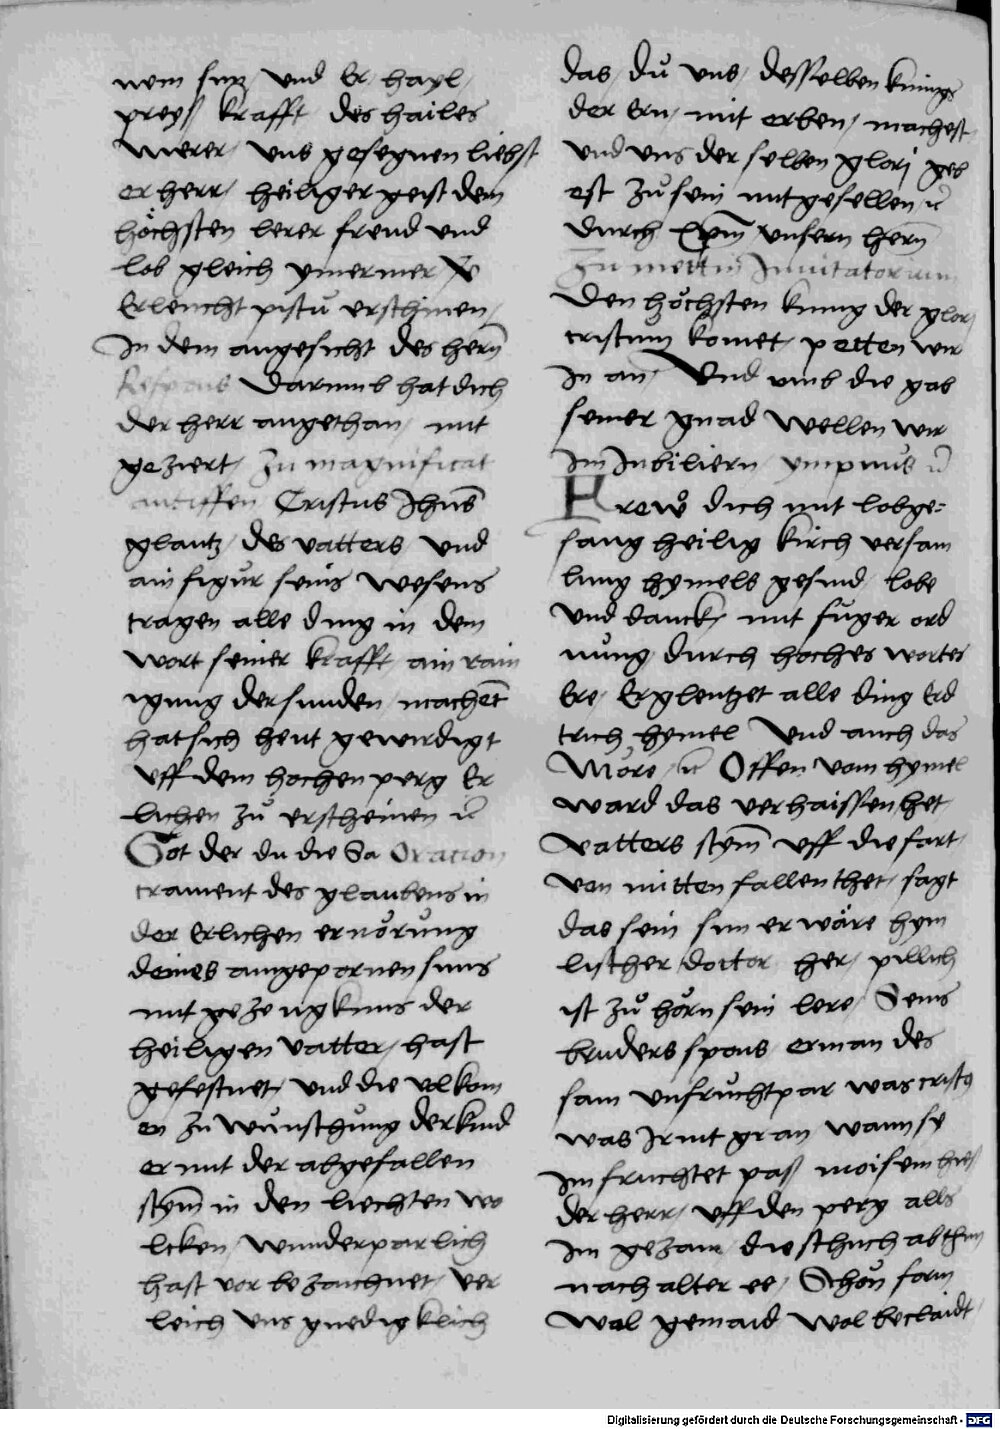 nem sun / und Er / hayl /
preyß krafft des hailes
Merer / uns gesegnen liebst
er herr / heiliger geist dem
höchsten lerer freud und
lob gleich ymermer
Erleucht pistu erschinen /
In dem angesicht des hern
Respons Darumb hat dich
der herr angethan / mit
geziert / Zu magnificat
antiffen Cristus Jhus
glantz / des vatters / und
ain figur seins Wesens
tragen alle ding in dem
wort seiner krafft / ain rain
igung der sunden / machent
hat sich heut gewirdigt
uff dem hochen perg Er
lichen zu erscheinen
Got der du die Sa Oracion
crament des glaubens in
der Erlichen ernörung
deines aingepornen suns
mit gezeugknus der
heiligen vatter / hast
gefestnet / und die volkom
en zu wünschung der kind
er mit der abgefallen
stym in den liechten wo
lcken / wunderparlich
hast vor bezaichnet / ver
leich uns gnedigklich
das / du uns / desselben kunigs
der Ern / mit erben / machest
und uns der selben glori geb
est zu sein mitgesellen
durch xpm unsern hern
Zu mettin Invitatorium
Den höchsten kunig der glori
cristum komet / petten wir
In an / Und umb die gab
seiner gnad Wellen wir
Im Jubiliern / ympnus
Frew dich mit lobge=
sang heilig kirch versam
lung hymels gesind / lobe
Und danck / mit fuger ord
nung / durch hoches wortes
Ere / Erglentzet alle ding Erd
trich hymel Und auch das
Möre / Offen vom hymel
ward das verhaissen het /
vatters stym uff die fart /
von mitten fallen thet / sagt
das sein sun er wäre hym
lischer doctor her / pillich
ist zu hörn sein lere / Seins
bruders spons erman des
sam unfruchtpar was cristus
was Irnt gran wann sy
Im fruchtet paß moisem hieß
der herr / uff den perg als
Im gezam / die schuch abthun
nach alter ee / Schön form
Wol gemaid Wol beclaidt /
Digitalisierung gefördert durch die Deutsche Forschungsgemeinschaft - DFG